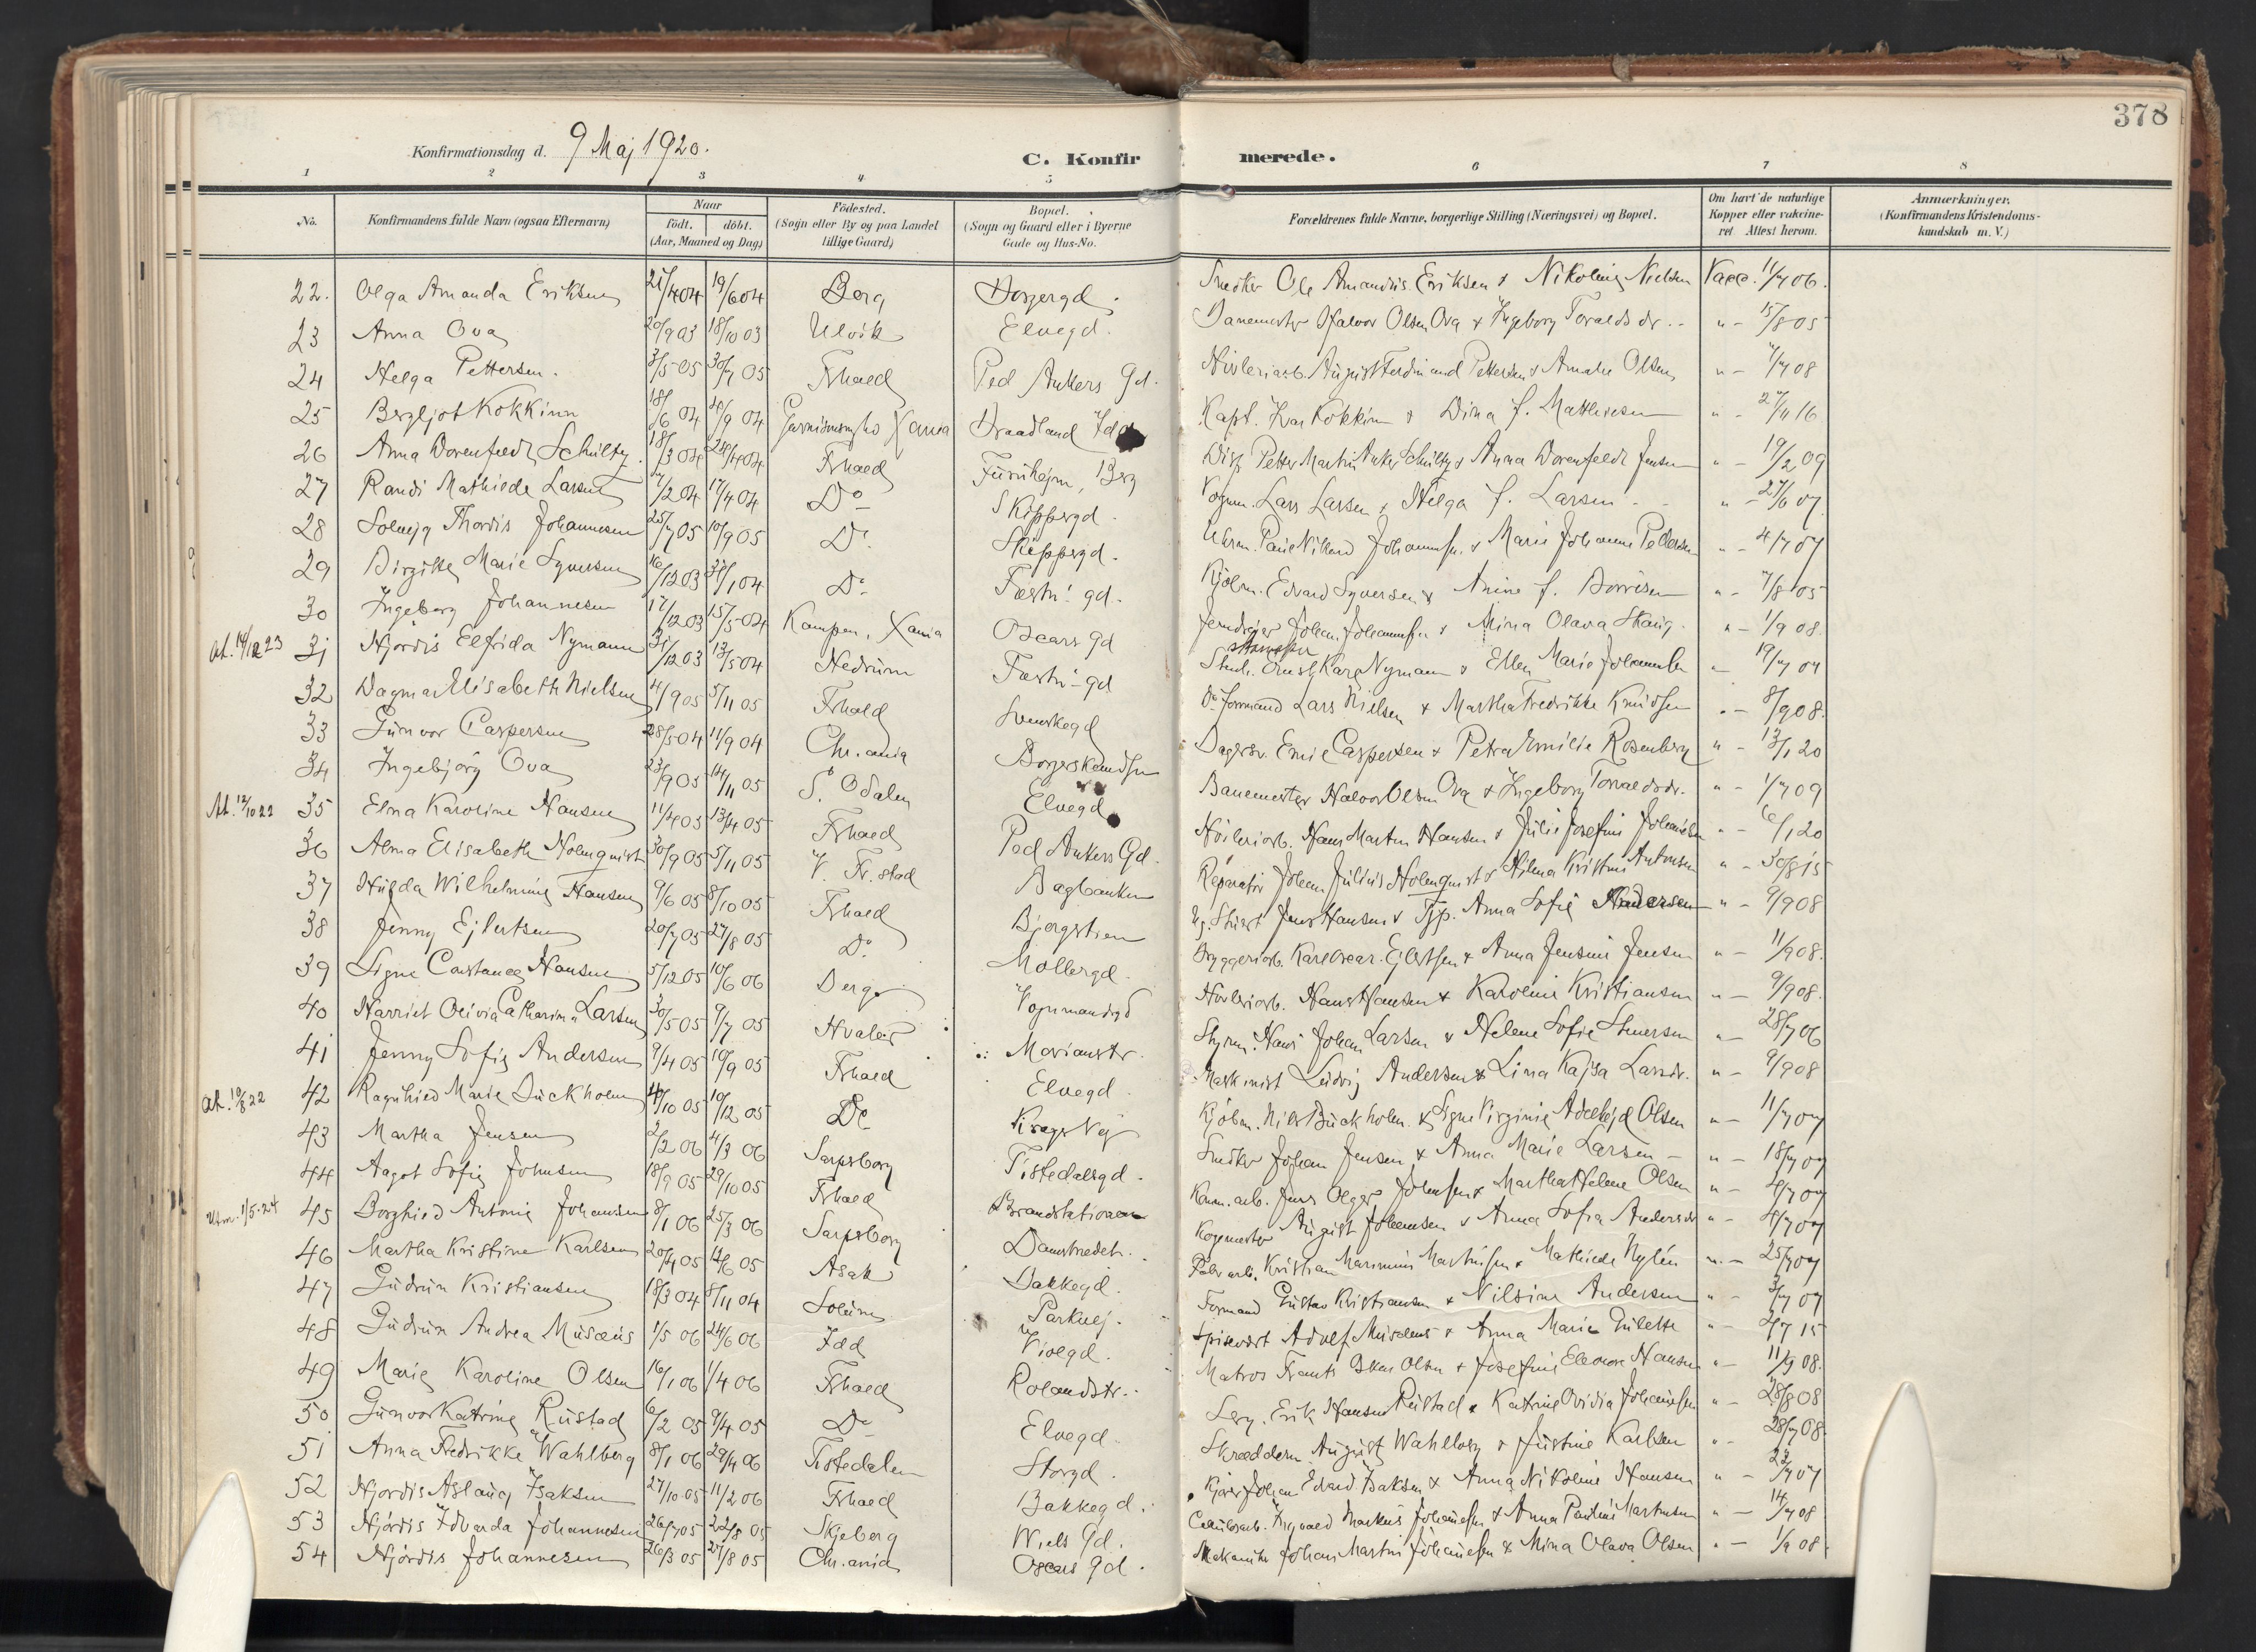 378
Konfirmationsdag d. 9 Maj 1920.
C. Konfirmerede.
1 2 3 4 5 6 7 8
No.
Konfirmandens fulde Navn (ogsaa Efternavn)
Naar
födt. döbt.
(Aar, Maaned og Dag)
Födested.
(Sogn eller By og paa Landet
tillige Gaard)
Bopæl.
(Sogn og Gaard eller i Byerne
Gade og Hus-No.
Forældrenes fulde Navne, borgerlige Stilling (Næringsvei) og Bopæl.
Om havt de naturlige
Kopper eller vakcine-
ret Attest herom.
Anmærkninger.
(Konfirmandens Kristendoms-
kundskab m. V.)
22. Olga Amanda Eriksen 21/4 04 19/6 04 Berg Borgergd. Snedker Ole Amandus Eriksen & Nikoline Nielsen Vacc. 11/7 06.
23 Anna Ova 20/9 03 18/10 03 Ulvik Elvegd. Banemester Halvor Olsen Ova & Ingeborg Toraldsdr. " - 15/8 05
24 Helga Pettersen. 3/5 05 30/7 05 Frhald Ped Ankers Gd. Høvleriarb. August Ferdinand Pettersen & Amalie Olsen " -
25 Bergljot Kokkinn 18/6 04 4/9 04 Xania Braadland Idd Kapt. Ivar Kokkinn & Dina f. Mathiesen " - 27/11 16
26 Anna Dorenfeldt Schultz. 18/3 04 24/4 04 Frhald Furuhejm, Berg Disp. Petter Martin Anker Schultz & Anna Dorenfeldt Jensen " - 19/2 09
27 Randi Mathilde Larsen 17/4 04 Do Skippergd. Vognm. Lars Larsen & Helga f. Larsen " - 27/6 07
28 Solvejg Thordis Johannesen 25/7 05 10/9 05 Do Skippergd. Marie Johanne Pettersen " - 4/7 07
29 Birgitte Marie Syversen 16/12 03 31/1 04 Do Fæstn. gd. Kjöbm. Edvard Syversen & Anine f. Borresen " - 7/8 05
30 Ingeborg Johannesen 17/12 03 15/5 04 Kampen, Xania Oscars Gd Jerndrejer Johan Johannesen & Mina Olava Skaug. " - 1/9 08.
At. 14/12 23 31 Hjørdis Elfrida Nymann 31/12 03 13/5 04 Nedrum Fæstn. gd Ernst Karg Nymann & Ellen Marie Johannesen " 19/7 04
32 Dagmar Elisabeth Nielsen 4/9 05 5/11 05 Frhald Svenskegd Formand Lars Nielsen & Martha Fredrikke Knudsen " - 8/9 08.
33 Gunvor Caspersen 28/5 04 11/9 04 Chr.ania Emil Caspersen & Petra Emilie Rosenberg " - 13/1 20
34 Ingebjörg Ova 23/9 05 14/11 05 S. Odalen Elvegd Banemester Halvor Olsen Ova & Ingeborg Toraldsdr. " - 1/7 09
At. 12/10 22 35 Elna Karoline Hansen 11/4 03 13/4 05 Frhald Ped Ankers Gd. Høvleriarb. Hans Martin Hansen & Julie Josefine Johansen " - 6/1 20
36 Alma Elisabeth Holmquist 30/9 05 5/11 05 V. Fr.stad Bagbanken Reparatør Johan Julius Holmquist & Hilma Kristine Antonsen " - 30/8 15
37 Hulda Wilhelmine Hansen 9/6 05 8/10 05 Frhald Bjørgstien Jens Hansen & Anna Sofie Andersen " - 9/9 08
38 Jenny Ejlertsen 20/7 05 27/8 05 Do Møllergd. Bryggeriarb. Karl Oscar Ejlertsen & Anna Jensine Jensen " - 11/9 08.
39 Signe Constance Hansen 5/12 05 10/6 06 Berg Vognmandsgd Høvleriarb. Hans Hansen & Karoline Kristiansen " - 9/9 08.
40 Harriet Olivia Catharina Larsen 30/5 05 9/7 05 Hvaler Marianstr. Styrm. Hans Johan Larsen & Helene Sofie Simersen " - 28/7 06
41 Jenny Sofie Andersen 9/4 05 10/9 05 Frhald Elvegd Maskinist Ludvig Andersen & Lina Kajsa Larsdr. " - 9/9 08
At. 19/8 22 42 Ragnhild Marie Buckholm /10 05 10/12 05 Do Krags Vej Kjöbm. Nils Buckholm & Signe Virginie Adelhejd Olsen " - 11/7 07
43 Martha Jensen 2/2 06 4/3 06 Sarpsborg Tistedalsgd. Snedker Johan Jensen & Anna Marie Larsen " - 18/7 07
44 Aagot Sofie Johnsen 18/9 05 29/10 05 Frhald Brandstationen Kom. arb. Jens Olger Johnsen & Martha Helene Olsen " - 4/7 07
Utm. 1/5-24 45 Borghild Antonie Johansen 8/1 06 25/3 06 Sarpsborg Damstredet. August Johansen & Anna Sofia Andersdr " - 4/7 07
46 Martha Kristine Karlsen 20/4 05 12/6 05 Asak Bakkegd. Fabr arb. Kristian Marinius Martinsen & Mathilde Nylén " - 25/7 07
47 Gudrun Kristiansen 18/3 04 8/11 04 Solum Parkvej. Formand Gustav Kristiansen & Nilsine Andersen " - 3/7 07
48 Gudrun Andrea Musæus 1/5 06 24/6 06 Idd Violgd. Spisevært Adolf Musæus & Anna Marie Gulette " - 4/7 15
49 Marie Karoline Olsen 16/1 06 1/4 06 Frhald Rolandstr. Matros Frants Oskar Olsen & Josefine Eleonora Hansen " - 11/9 08.
50 Gunvor Katrine Rustad 6/2 05 9/4 05 Do Elvegd. Serg. Erik Hansen Rustad & Katrine Ovidia Johannesen " - 28/8 08
51 Anna Fredrikke Wahlberg 8/1 06 29/4 06 Tistedalen Storgd. Skrædderm. August Wahlberg & Justine Karlsen " - 28/7 08.
52 Hjørdis Aslaug Isaksen 27/10 05 11/2 06 Frhald Bakkegd. Johan Edvard Isaksen & Anna Nikoline Hansen " - 23/7 07
53 Hjørdis Edvarda Johannesen 26/7 05 22/8 05 Skjeberg Wiels Gd. Ingvald Markus Johannesen & Anna Pauline Martinsen " - 14/7 08
54 Hjørdis Johannesen 26/3 05 27/8 05 Chr.ania Oscars Gd. Mekaniker Johan Martin Johannesen & Mina Olava Olsen " - 1/9 08.